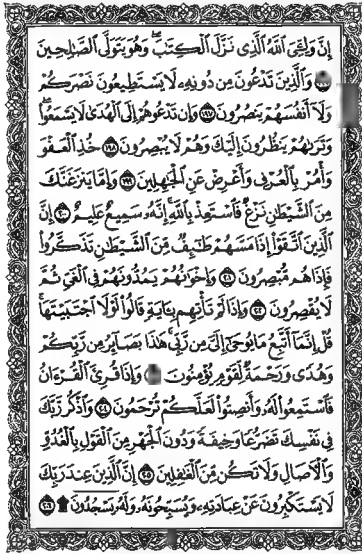 إِنَّ وَلِـِّۧيَ ٱللَّهُ ٱلَّذِي نَزَّلَ ٱلْكِتَٰبَ ۖ وَهُوَ يَتَوَلَّى ٱلصَّٰلِحِينَ
وَٱلَّذِينَ تَدْعُونَ مِن دُونِهِۦ لَا يَسْتَطِيعُونَ نَصْرَكُمْ
وَلَآ أَنفُسَهُمْ يَنصُرُونَ ١٩٧ وَإِن تَدْعُوهُمْ إِلَى ٱلْهُدَىٰ لَا يَسْمَعُوا۟ ۖ
وَتَرَىٰهُمْ يَنظُرُونَ إِلَيْكَ وَهُمْ لَا يُبْصِرُونَ ١٩٨ خُذِ ٱلْعَفْوَ
وَأْمُرْ بِٱلْعُرْفِ وَأَعْرِضْ عَنِ ٱلْجَٰهِلِينَ ١٩٩ وَإِمَّا يَنزَغَنَّكَ
مِنَ ٱلشَّيْطَٰنِ نَزْغٌ فَٱسْتَعِذْ بِٱللَّهِ ۚ إِنَّهُۥ سَمِيعٌ عَلِيمٌ ٢٠٠ إِنَّ
ٱلَّذِينَ ٱتَّقَوْا۟ إِذَا مَسَّهُمْ طَٰٓئِفٌ مِّنَ ٱلشَّيْطَٰنِ تَذَكَّرُوا۟
فَإِذَا هُم مُّبْصِرُونَ ٢٠١ وَإِخْوَٰنُهُمْ يَمُدُّونَهُمْ فِي ٱلْغَيِّ ثُمَّ
لَا يُقْصِرُونَ ٢٠٢ وَإِذَا لَمْ تَأْتِهِم بِـَٔايَةٍ قَالُوا۟ لَوْلَا ٱجْتَبَيْتَهَا ۚ
قُلْ إِنَّمَآ أَتَّبِعُ مَا يُوحَىٰٓ إِلَيَّ مِن رَّبِّي ۚ هَٰذَا بَصَآئِرُ مِن رَّبِّكُمْ
وَهُدًى وَرَحْمَةٌ لِّقَوْمٍ يُؤْمِنُونَ وَإِذَا قُرِئَ ٱلْقُرْءَانُ
فَٱسْتَمِعُوا۟ لَهُۥ وَأَنصِتُوا۟ لَعَلَّكُمْ تُرْحَمُونَ ٢٠٤ وَٱذْكُر رَّبَّكَ
فِي نَفْسِكَ تَضَرُّعًا وَخِيفَةً وَدُونَ ٱلْجَهْرِ مِنَ ٱلْقَوْلِ بِٱلْغُدُوِّ
وَٱلْءَاصَالِ وَلَا تَكُن مِّنَ ٱلْغَٰفِلِينَ ٢٠٥ إِنَّ ٱلَّذِينَ عِندَ رَبِّكَ
لَا يَسْتَكْبِرُونَ عَنْ عِبَادَتِهِۦ وَيُسَبِّحُونَهُۥ وَلَهُۥ يَسْجُدُونَ ۩ ٢٠٦